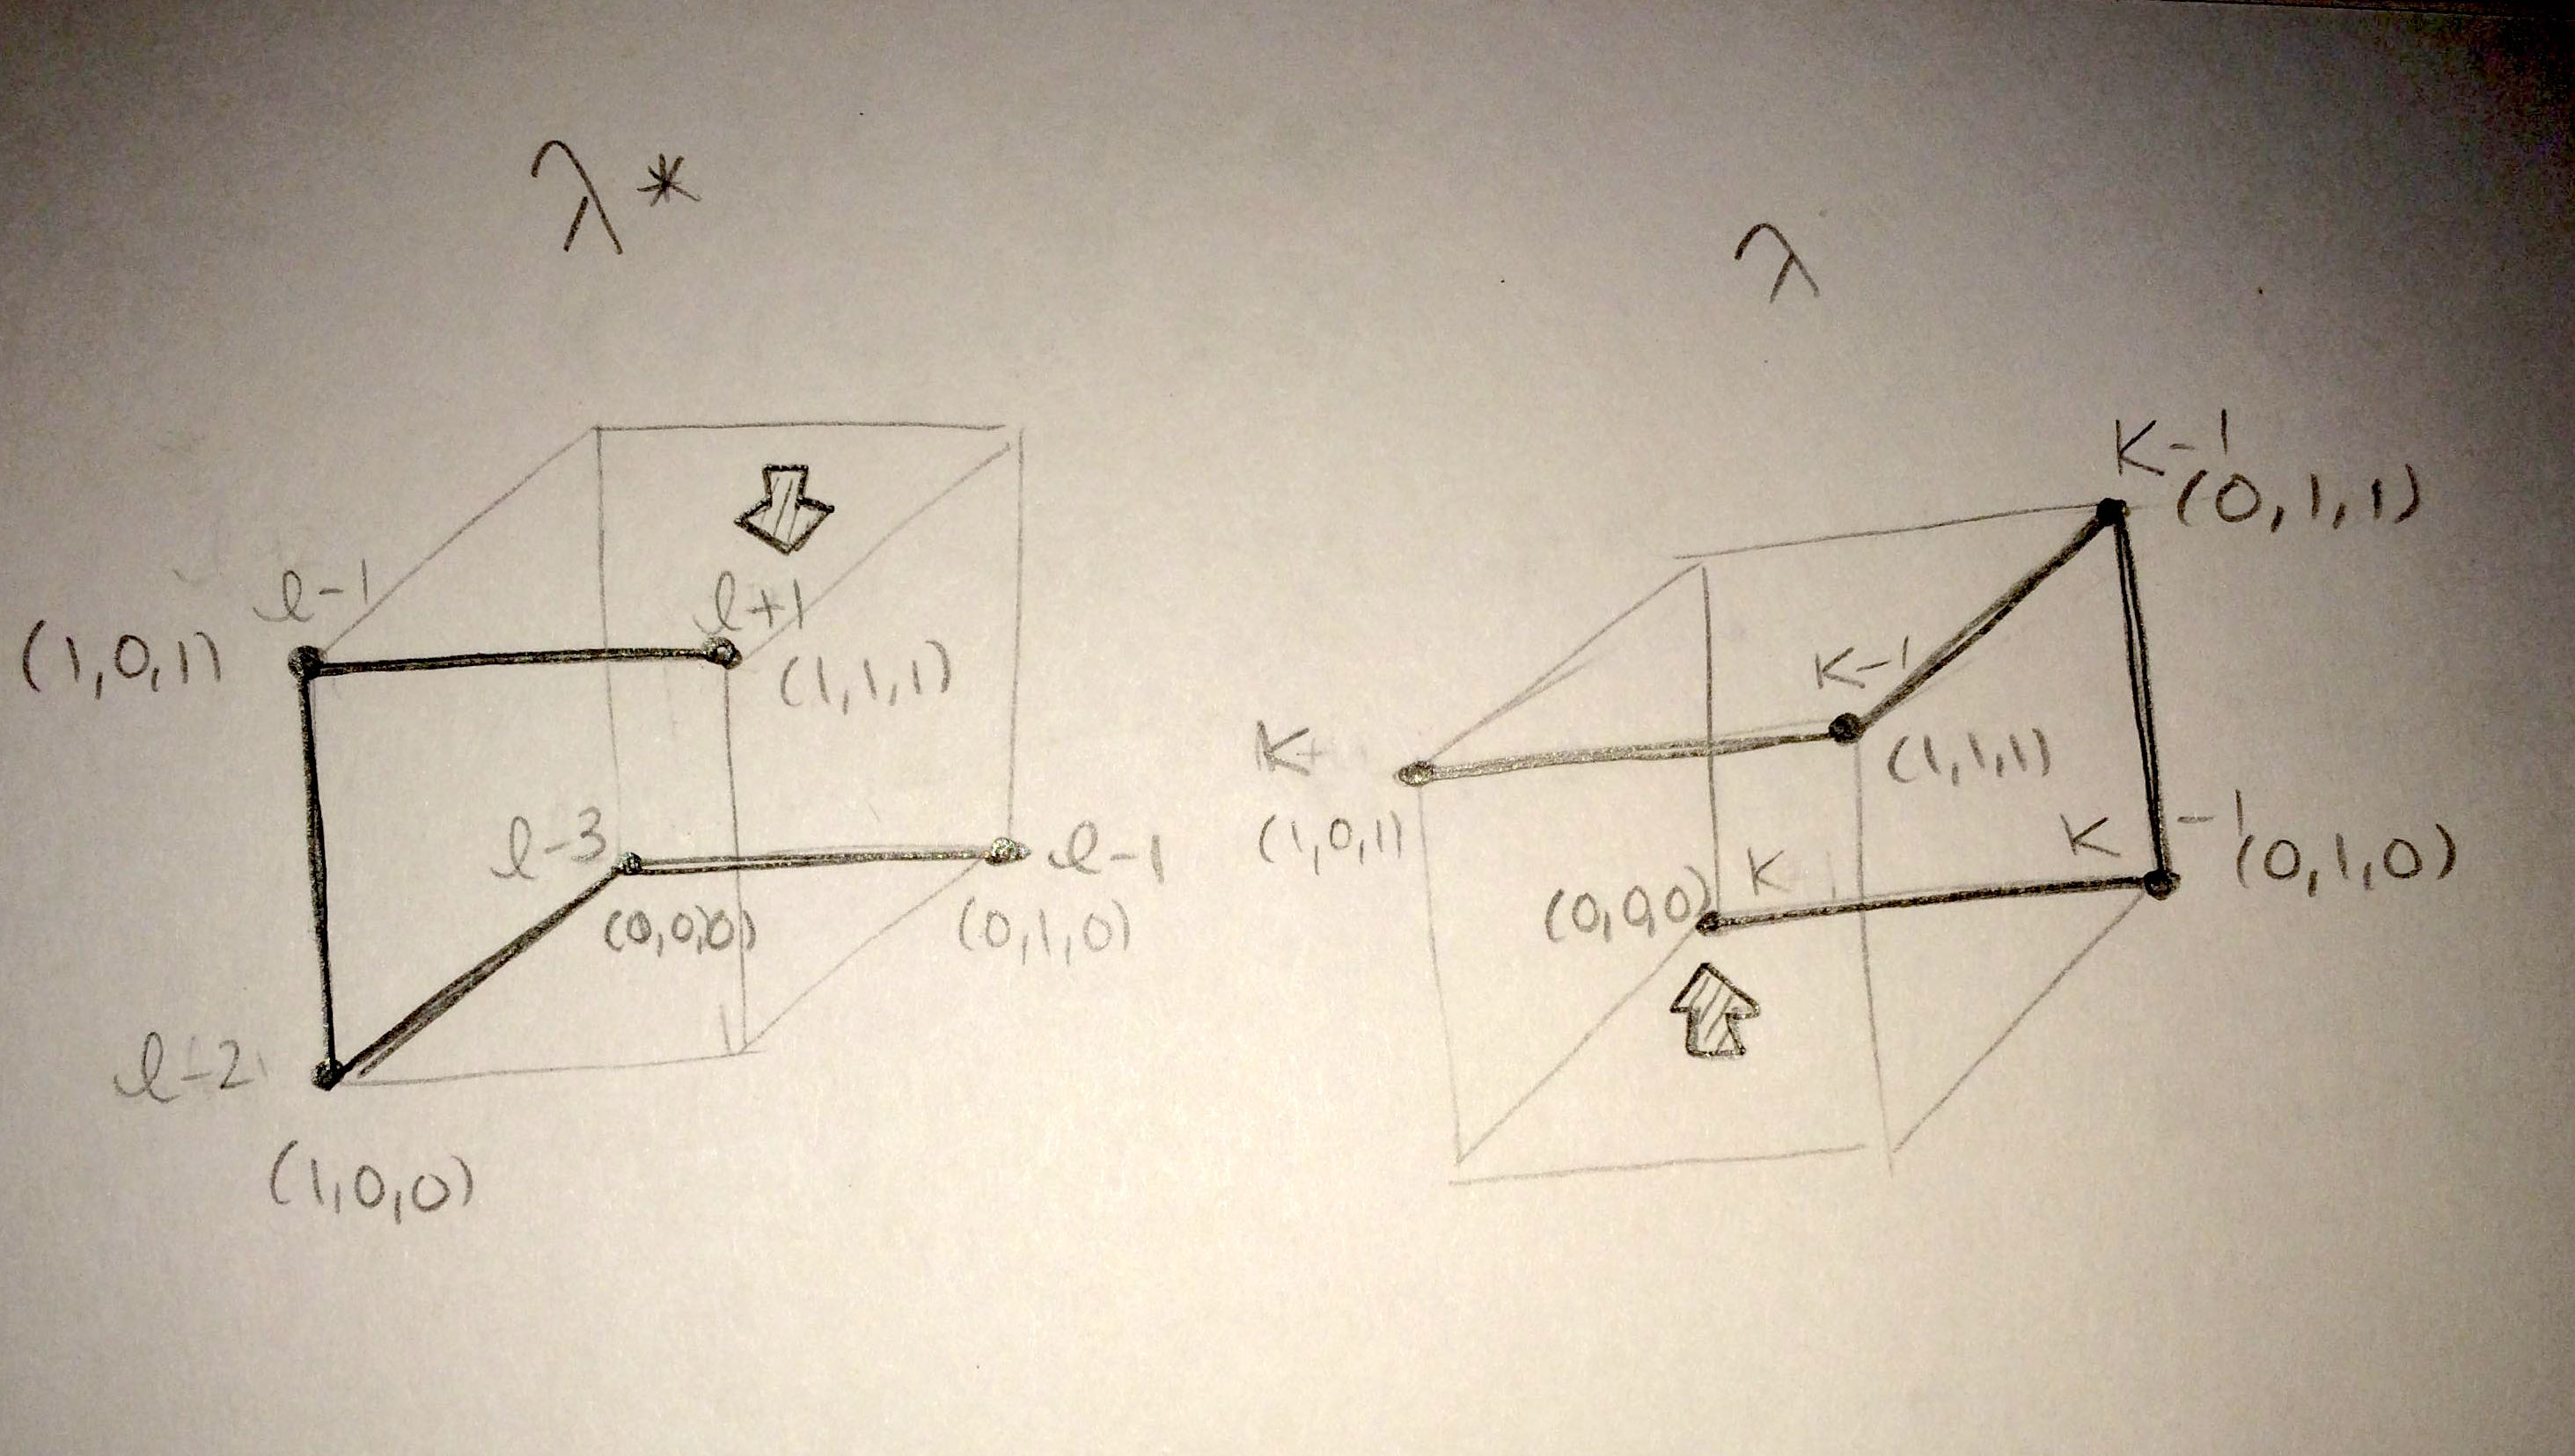 λ*
ℓ-1
(1,0,1)
ℓ+1
(1,1,1)
ℓ-3
(0,0,0)
ℓ-1
(0,1,0)
ℓ-2
(1,0,0)
λ
K-1
(0,1,1)
K-1
(1,1,1)
K
(1,0,1)
(0,0,0)
K
K-1
(0,1,0)